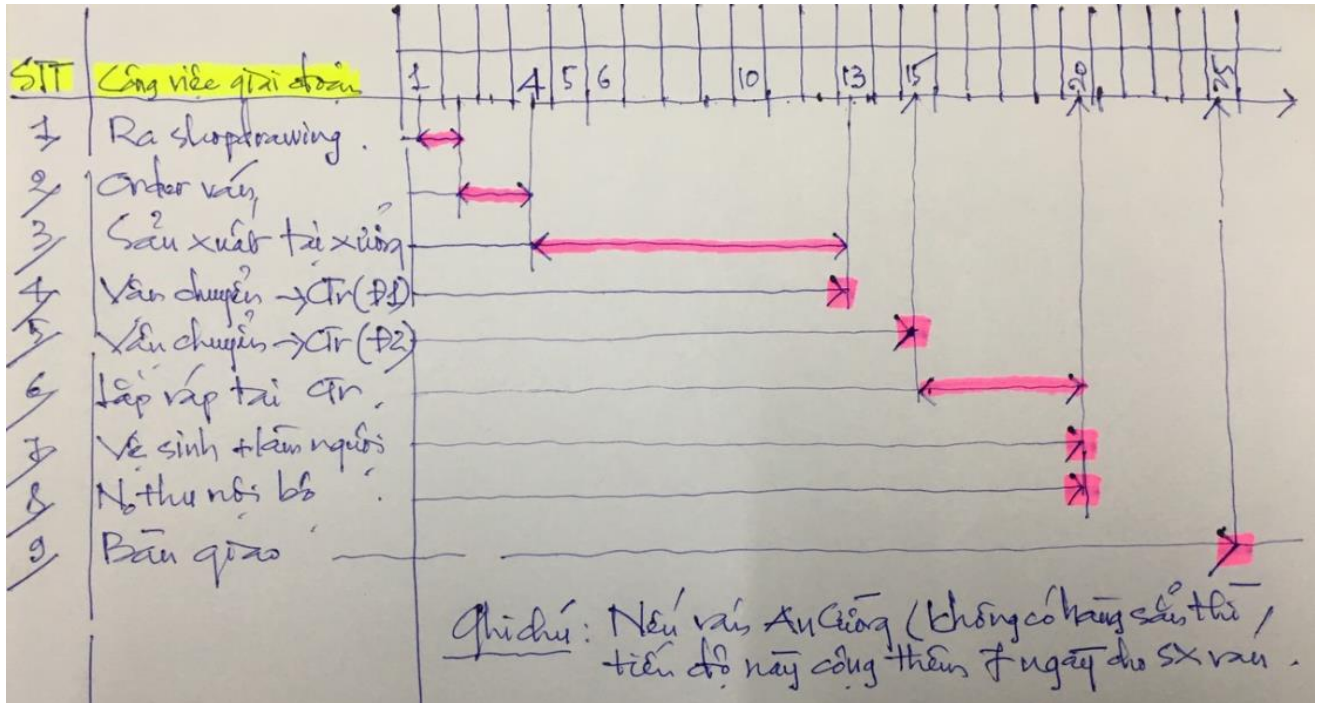 1 4 5 6 10 13 15 20 25
STT Công việc giai đoạn
1 Ra shopdrawing.
2 Order ván
3 Sản xuất tại xưởng
4 Vận chuyển → CTr (Đ1)
5 Vận chuyển → CTr (Đ2)
6 Lắp ráp tại CTr.
7 Vệ sinh + làm nguội
8 N.thu nội bộ.
9 Bàn giao
Ghi chú: Nếu ván An Cường (không có hàng sẵn thì
tiến độ này cộng thêm 7 ngày cho SX ván.